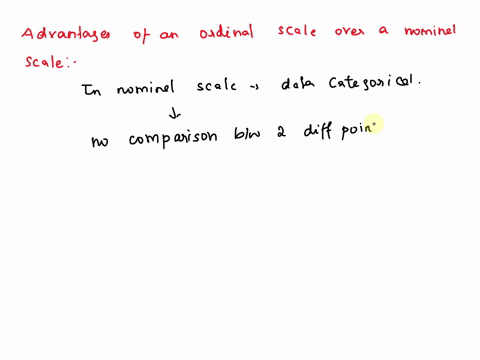 Advantages of an ordinal scale over a nominal
scale:-
In nominal scale → data categorical.
↓
no comparison b/w 2 diff poin